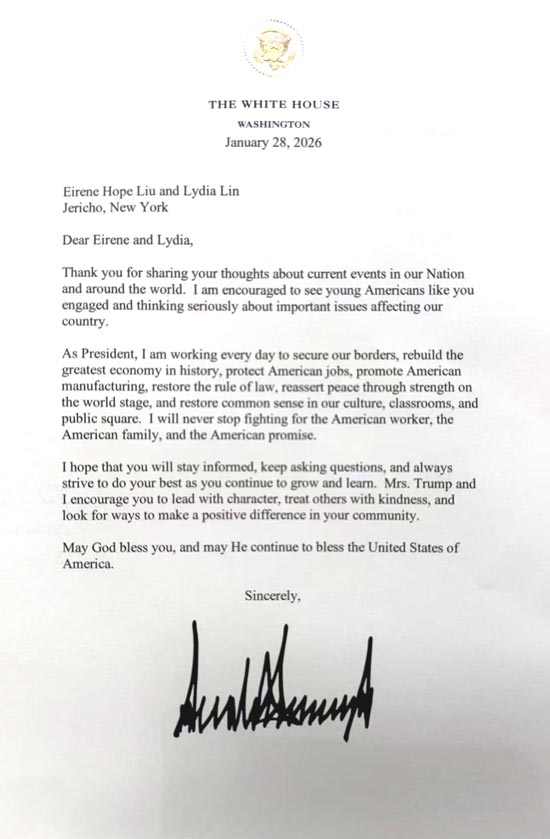 THE WHITE HOUSE
WASHINGTON
January 28, 2026
Eirene Hope Liu and Lydia Lin
Jericho, New York
Dear Eirene and Lydia,
Thank you for sharing your thoughts about current events in our Nation
and around the world.  I am encouraged to see young Americans like you
engaged and thinking seriously about important issues affecting our
country.
As President, I am working every day to secure our borders, rebuild the
greatest economy in history, protect American jobs, promote American
manufacturing, restore the rule of law, reassert peace through strength on
the world stage, and restore common sense in our culture, classrooms, and
public square.  I will never stop fighting for the American worker, the
American family, and the American promise.
I hope that you will stay informed, keep asking questions, and always
strive to do your best as you continue to grow and learn.  Mrs. Trump and
I encourage you to lead with character, treat others with kindness, and
look for ways to make a positive difference in your community.
May God bless you, and may He continue to bless the United States of
America.
Sincerely,